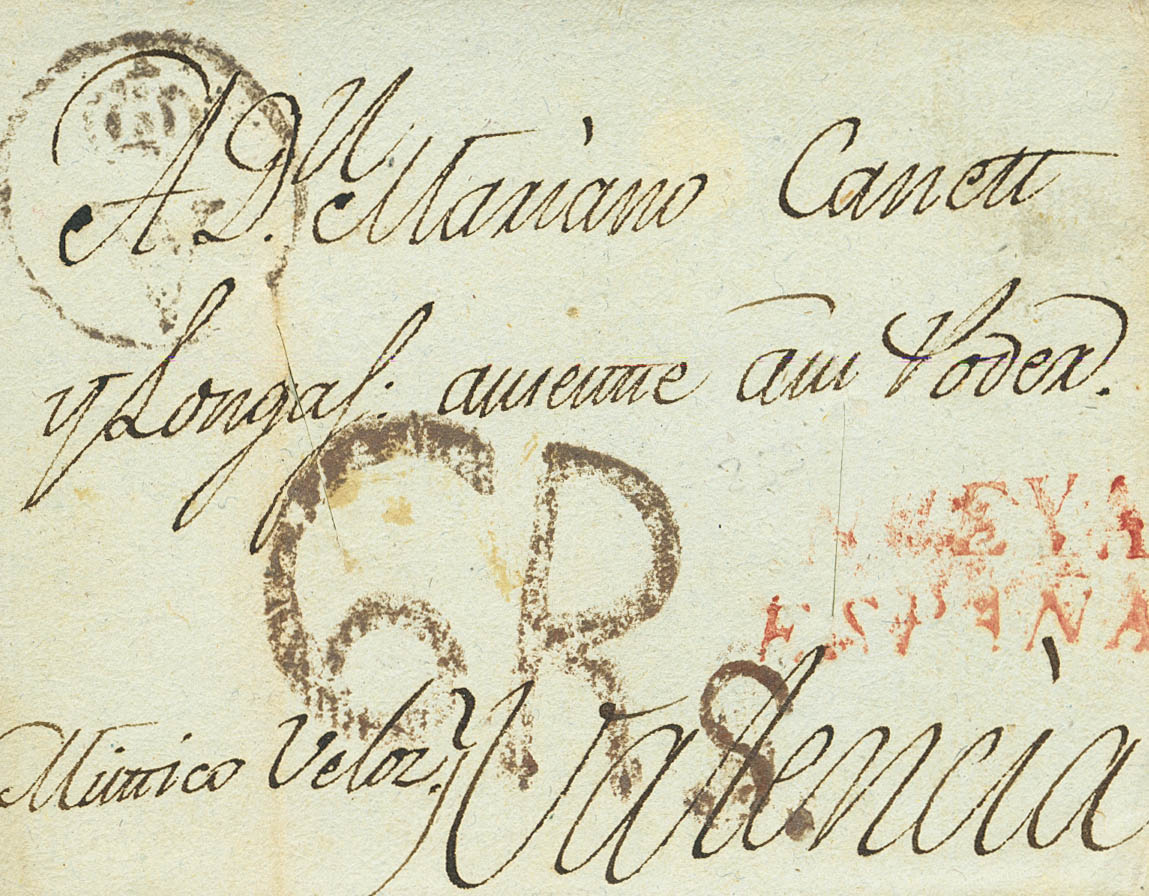 A D.n Mariano Canett
y Longas. ausente asu Poder.
6R s.
NUEVA
ESPAÑA
Valencia